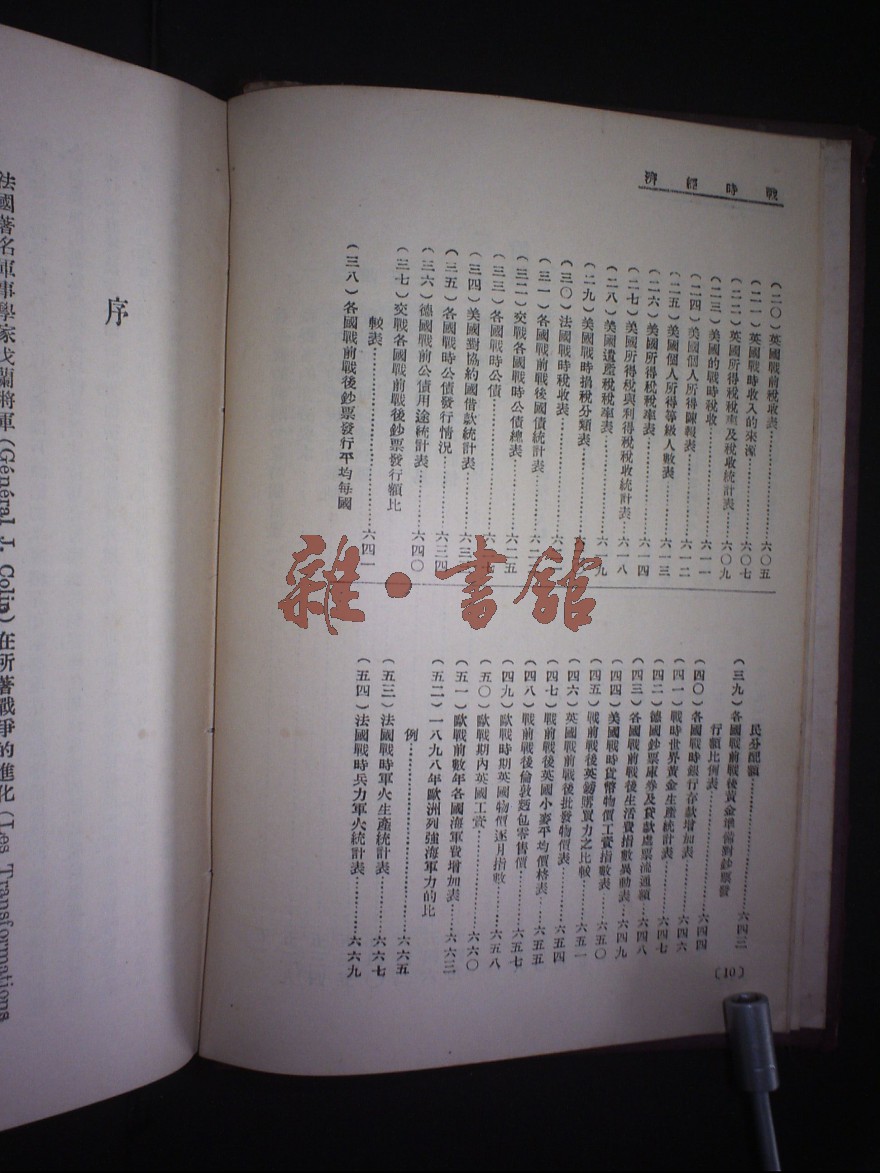 戰時經濟
(二〇)英國戰前稅收表……六〇五
(二一)英國戰時收入的來源……六〇七
(二二)英國所得稅稅率及稅收統計表……六〇九
(二三)美國的戰時稅收……六一一
(二四)美國個人所得陳報表……六一二
(二五)美國個人所得等級人數表……六一三
(二六)美國所得稅稅率表……六一四
(二七)美國所得稅與利得稅稅收統計表……六一八
(二八)美國遺產稅稅率表……六一九
(二九)美國戰時捐稅分類表……六
(三〇)法國戰時稅收表……六
(三一)各國戰前戰後國債統計表……六二
(三二)交戰各國戰時公債總表……六二五
(三三)各國戰時公債……六二七
(三四)美國對協約國借款統計表……六三
(三五)各國戰時公債發行情況……六三四
(三六)德國戰前公債用途統計表……六四〇
(三七)交戰各國戰前戰後鈔票發行額比
較表……六四一
(三八)各國戰前戰後鈔票發行平均每國
民分配額……六四三
(三九)各國戰前戰後黃金準備對鈔票發
行額比例表……六四四
(四〇)各國戰時銀行存款增加表……六四六
(四一)戰時世界黃金生產統計表……六四七
(四二)德國鈔票庫券及貸款處票流通額……六四八
(四三)各國戰前戰後生活費指數異動表……六四九
(四四)美國戰時貨幣物價工資指數表……六五〇
(四五)戰前戰後英鎊購買力之比較……六五一
(四六)英國戰前戰後批發物價表……六五四
(四七)戰前戰後英國小麥平均價格表……六五五
(四八)戰前戰後倫敦麵包零售價……六五七
(四九)歐戰時期英國物價逐月指數……六五八
(五〇)歐戰期內英國工資……六六〇
(五一)歐戰前數年各國海軍費增加表……六六二
(五二)一八九八年歐洲列強海軍力的比
例……六六五
(五三)法國戰時軍火生產統計表……六六七
(五四)法國戰時兵力軍火統計表……六六九
〔10〕
序
法國著名軍事學家戈蘭將軍(Général J. Colin)在所著戰爭的進化(Les Transformations
雜·書館